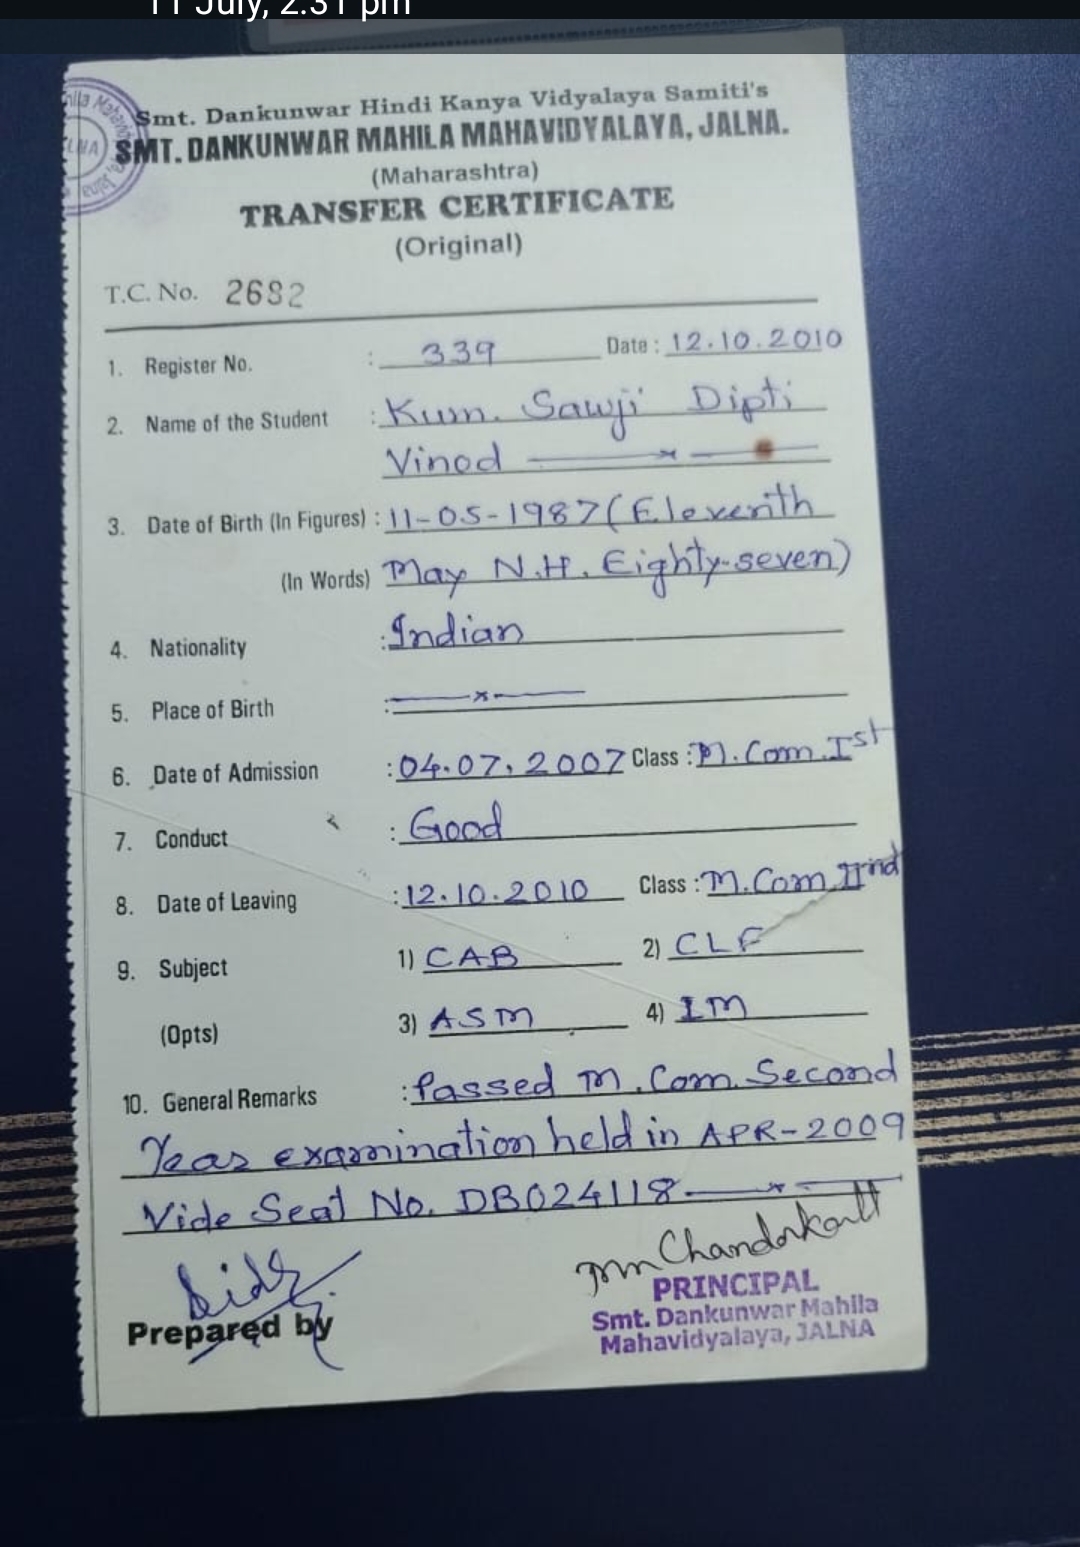 11 July, 2:31 pm
Smt. Dankunwar Hindi Kanya Vidyalaya Samiti's
SMT. DANKUNWAR MAHILA MAHAVIDYALAYA, JALNA.
(Maharashtra)
TRANSFER CERTIFICATE
(Original)
T.C. No. 2682
1. Register No. : 339 Date : 12.10.2010
2. Name of the Student : Kum. Sawji Dipti
Vinod
3. Date of Birth (In Figures) : 11-05-1987 (Eleventh
(In Words) May N.H. Eighty-seven)
4. Nationality : Indian
5. Place of Birth : —x—
6. Date of Admission : 04.07.2007 Class : M.Com.Ist
7. Conduct : Good
8. Date of Leaving : 12.10.2010 Class : M.Com IInd
9. Subject 1) CAB 2) CLF
(Opts) 3) ASM 4) IM
10. General Remarks : Passed M.Com. Second
Year examination held in APR-2009
Vide Seat No. DB024118 —x—
Prepared by
PRINCIPAL
Smt. Dankunwar Mahila
Mahavidyalaya, JALNA